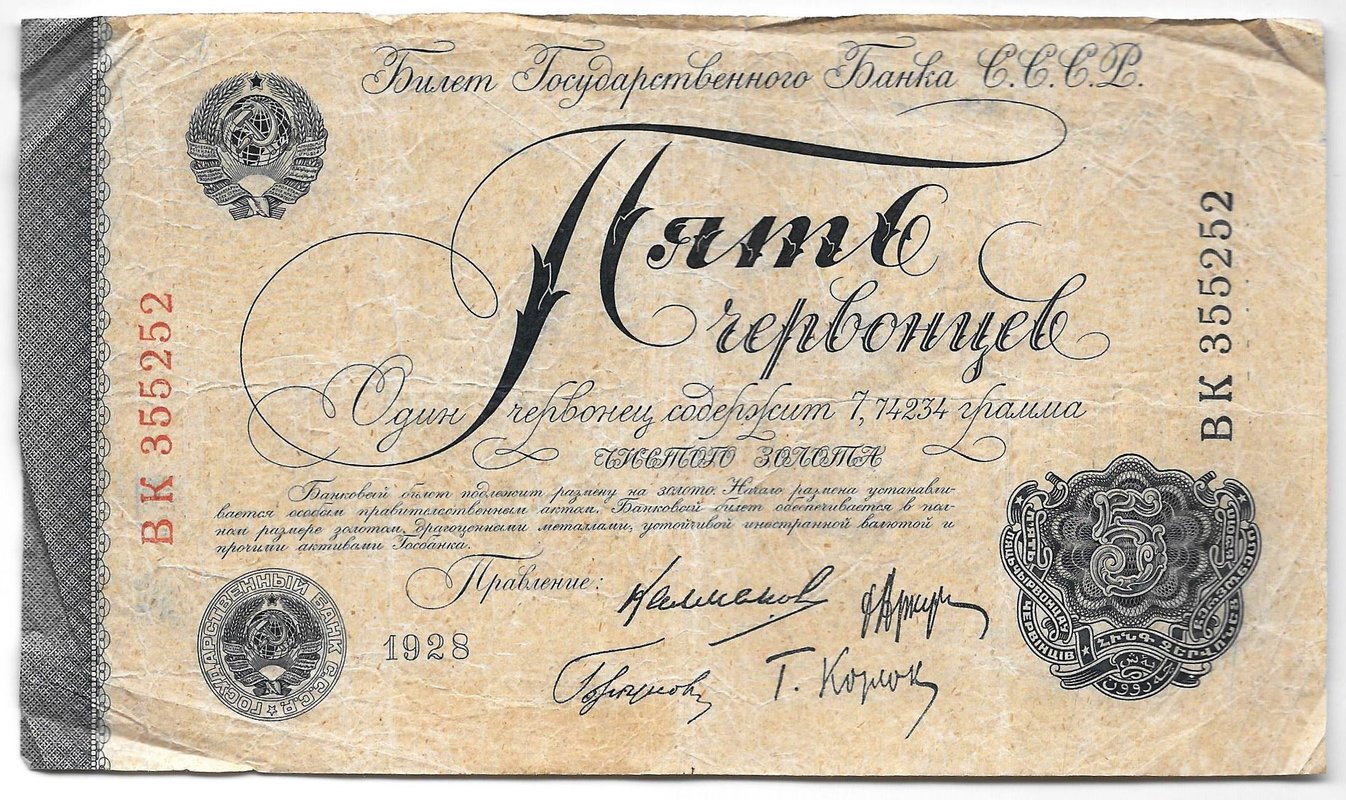 Билет Государственного Банка С.С.С.Р.
Пять
червонцев
Один червонец содержит 7,74234 грамма
чистого золота
Банковый билет подлежит размену на золото. Начало размена устанавли-
вается особым правительственным актом. Банковый билет обеспечивается в пол-
ном размере золотом, драгоценными металлами, устойчивой иностранной валютой и
прочими активами Госбанка.
Правление:
1928
ВК 355252
ВК 355252
ГОСУДАРСТВЕННЫЙ БАНК С.С.С.Р.
5
ՀԻՆԳ ՉԵՐՎՈՆԵՑ